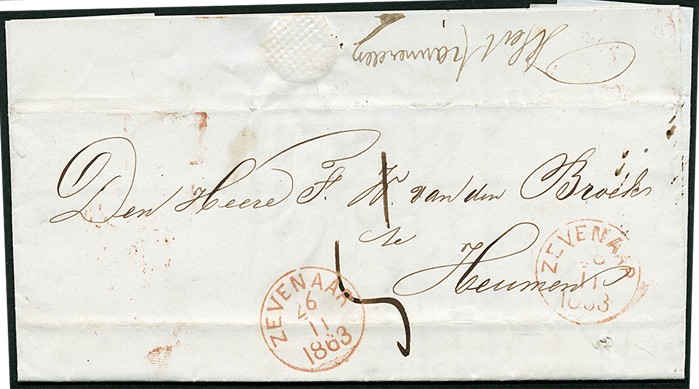 Den Heere F. W. van den Broek
te
Heumen
5
ZEVENAAR
26
11
1863
ZEVENAAR
26
11
1863